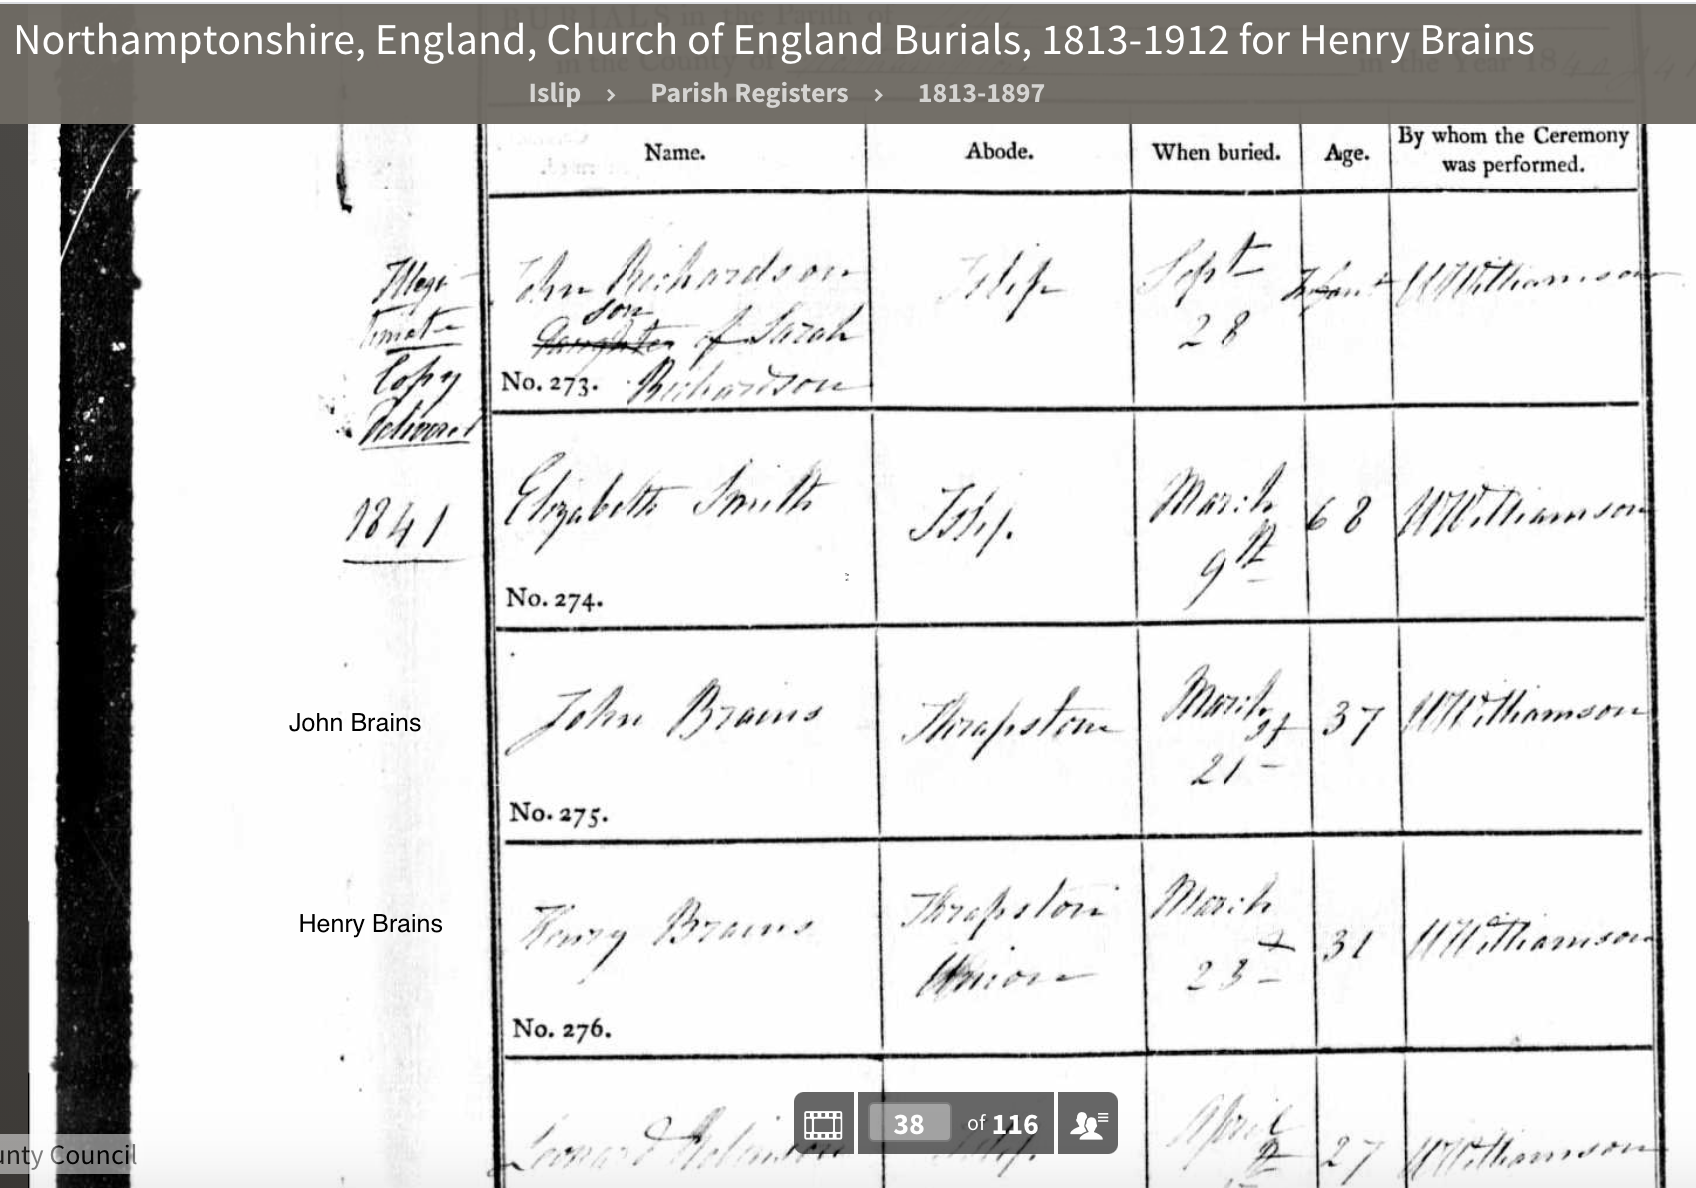 Northamptonshire, England, Church of England Burials, 1813-1912 for Henry Brains
BURIALS in the Parish of
in the County of in the Year 18
Islip › Parish Registers › 1813-1897
Name. Abode. When buried. Age. By whom the Ceremony was performed.
Illegi-
timate
Copy
delivered
John Richardson
son
daughter of Sarah
No. 273. Richardson
Islip
Sept
28
Infant
W Williamson
1841
Elizabeth Smith
No. 274.
Islip.
March
9th
68
W Williamson
John Brains
John Brains
No. 275.
Thrapstone
March
21st
37
W Williamson
Henry Brains
Henry Brains
No. 276.
Thrapston
Union
March
23
31
W Williamson
Leonard Robinson
Islip.
April
27
W Williamson
38 of 116
unty Council